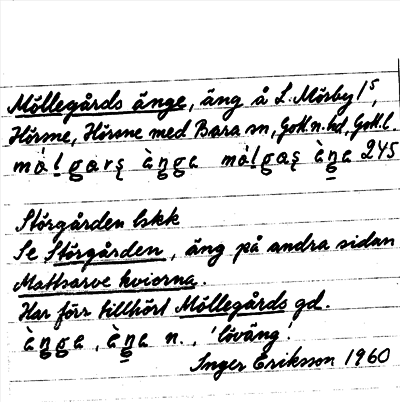 Möllegårds änge, äng å L. Mörby 1⁵,
Hörsne, Hörsne med Bara sn, Gotl.n.hd, Gotl.l.
245
Storgården lskk
Se Storgården, äng på andra sidan
Mattsarve kviorna.
Har förr tillhört Möllegårds gd.
n., 'löväng'.
Inger Eriksson 1960